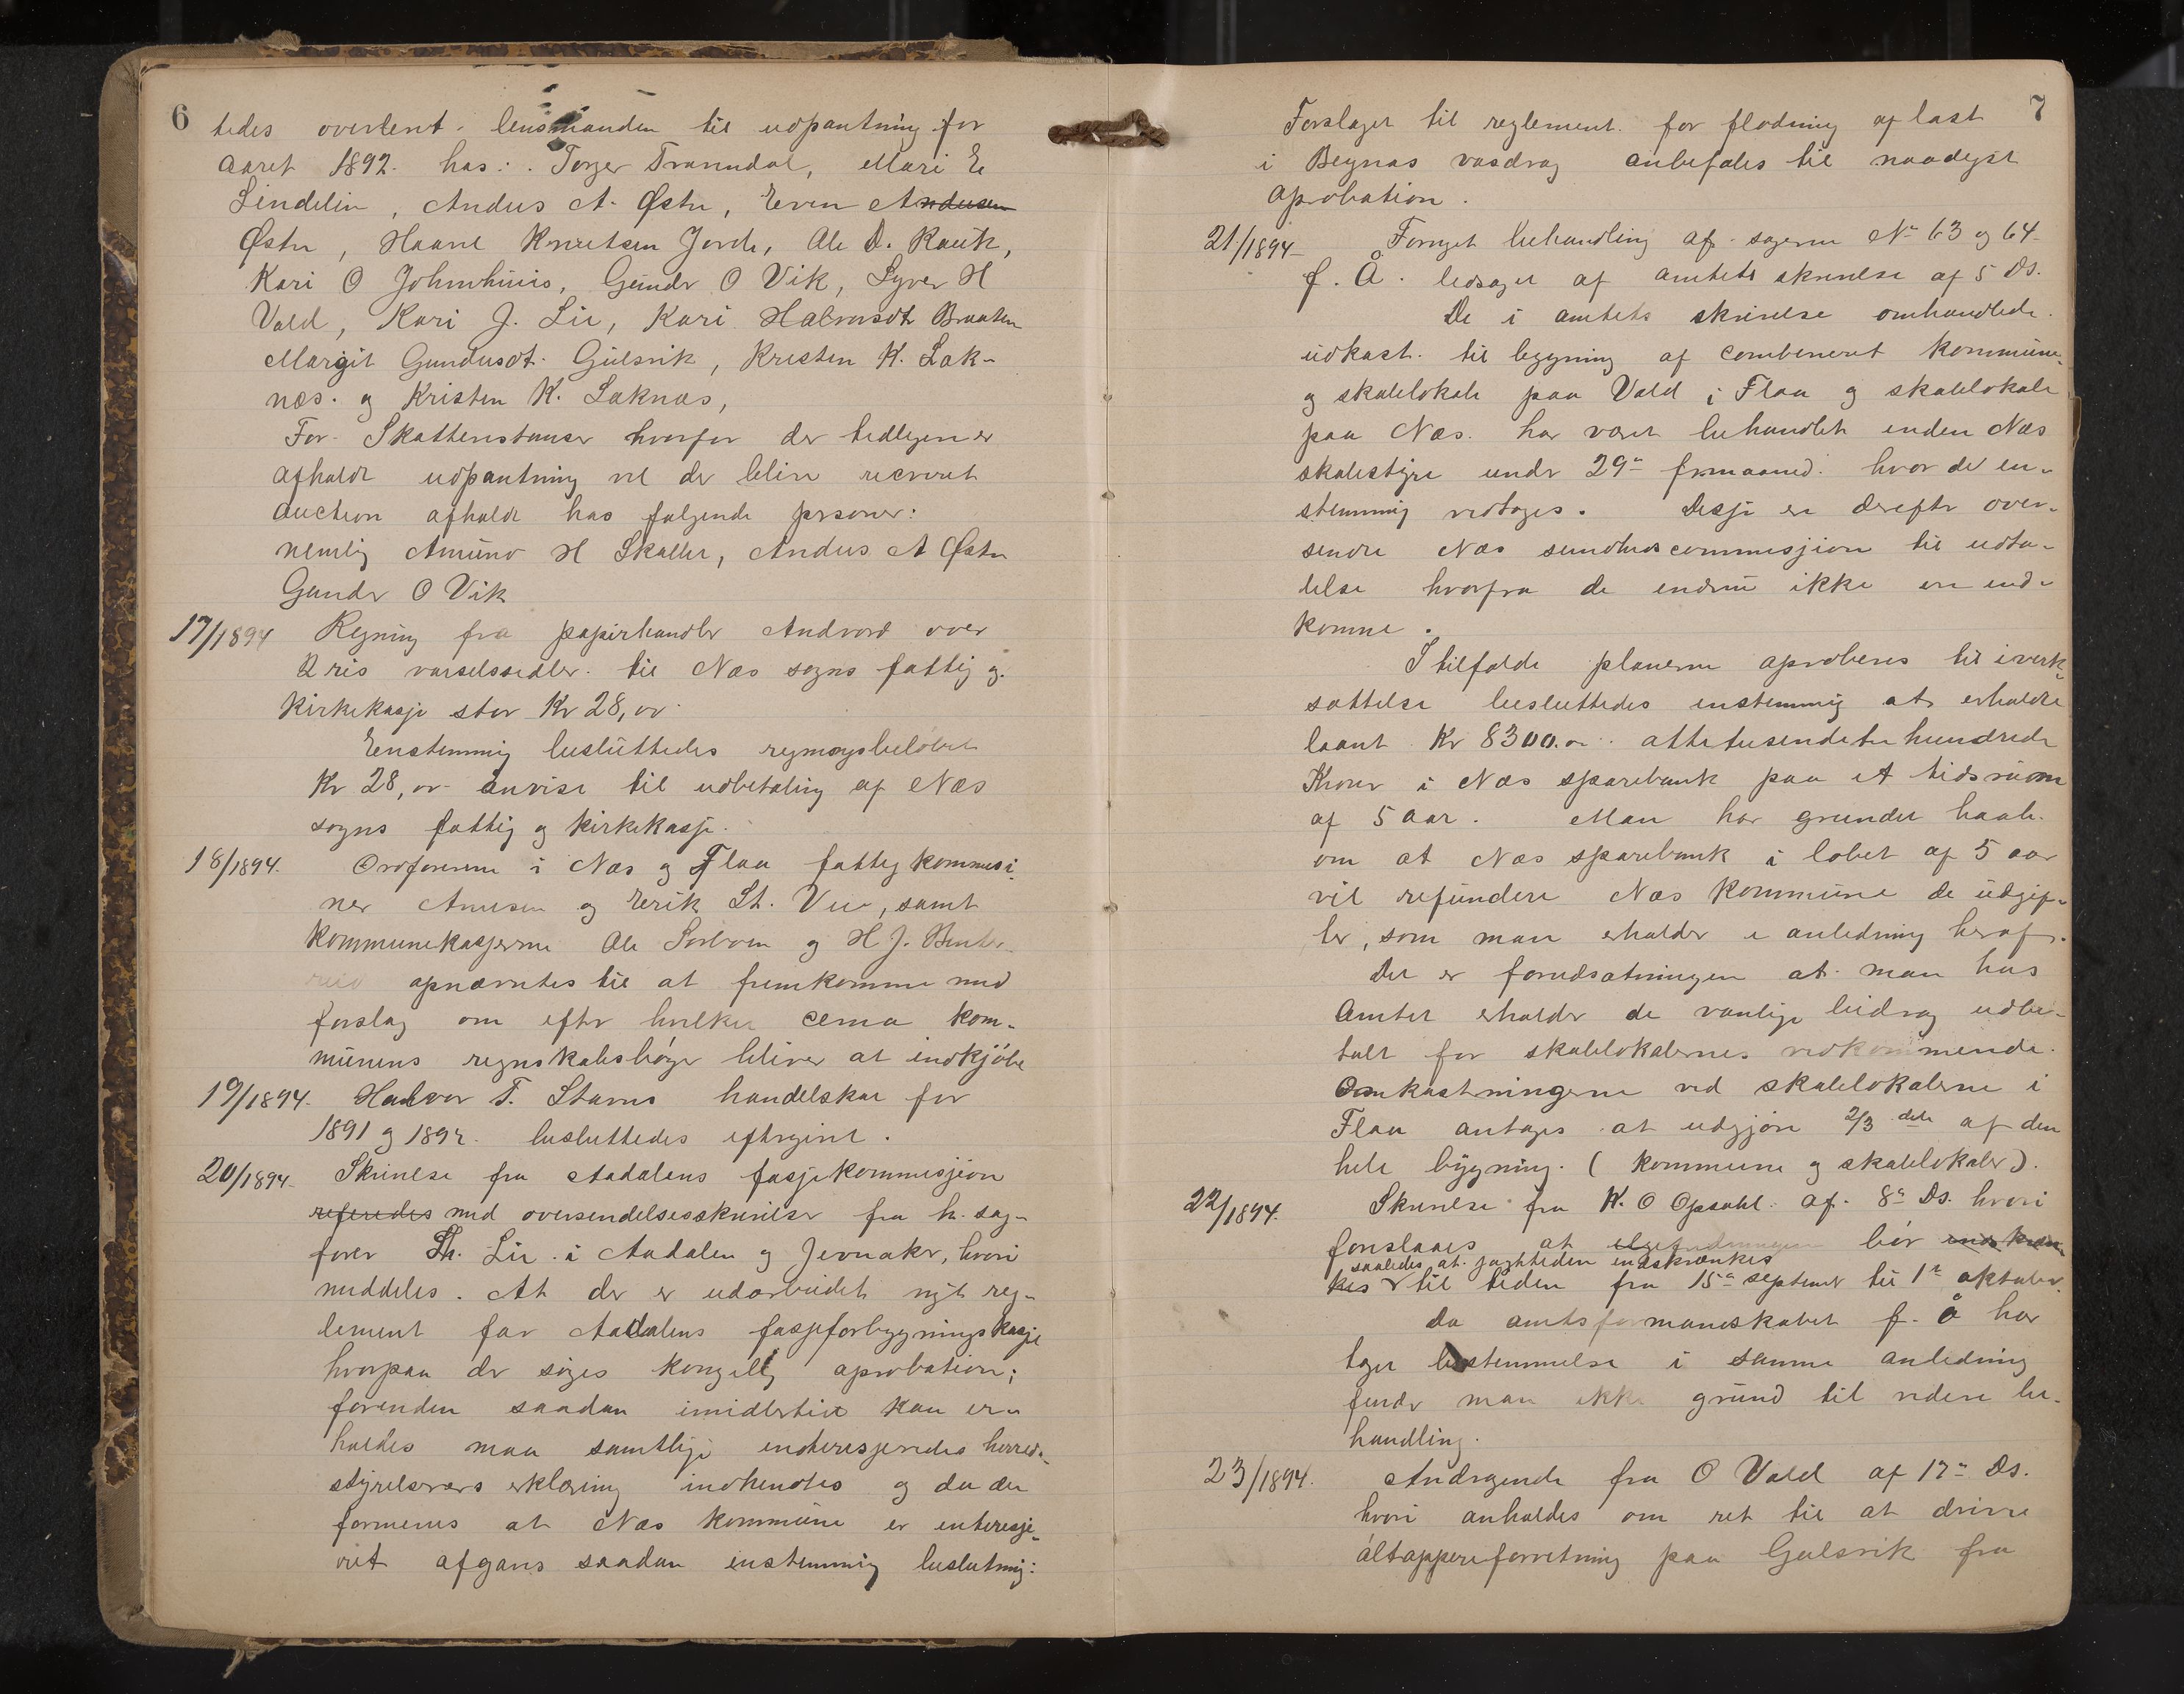 6
tedes overlevt. lensmanden til udpantning for
aaret 1892. hos: Torger Tranndal, Mari E
Lindelin, Andus A. Østn, Even Andusen
Østn, Haave Knutsen Jorde, Ole D. Rauk,
Kari O Johnshuus, Gundr O Vik, Syver H
Vold, Kari J. Lie, Kari Halvorsdt Braaten
Margit Gundusdt. Gulsvik, Kristen K. Lak-
næs. og Kristen K. Laknæs,
For Skatterestanser hvorfor der tedligen er
afholdt udpantning vil der blive
auction afholdt hos følgende personer:
nemlig Amund H Skaller, Andus A Østn
Gundr O Vik
17/1894 Regning fra papirhandler Andvord over
2 ris varselssedler til Næs sogns fattig og
kirkekasse stor Kr 28,00
Enstemmig besluttedes regningsbeløbet
Kr 28,00 anvise til udbetaling af Næs
sogns fattig og kirkekasse.
18/1894. Ordførerne i Næs og Flaa fattigkommisi-
ner og Erik St. samt
kommunekasjerne Ole Sorbøen og H J.
opnævntes til at fremkomme med
forslag om efter hvilket cema kom-
munens regnskabsbøger bliver at indkjøbe
19/1894. Halvor T. Stavns handelskat for
1891 og 1892 besluttedes eftergivet.
20/1894 Skrivelse fra Aadalens fasjekommisjion
referedes med oversendelsesskrivelse fra h. sag-
fører Th. Lie i Aadalen og Jevnaker, hvori
meddeles. At der er udarbeidet nyt reg-
lement for Aadalens fasjeforbygningskasje
hvorpaa der søges kongelig aprobation;
forenden saadan imidlertid kan er-
holdes maa samtlige interesjeredes herreds-
styrelsers erklæring indhendtes og da der
formenes at Næs kommune er interesje-
ret afgaves saadan enstemmig beslutning:
7
Forslaget til reglement for flødning af last
i Begnas vasdrag anbefales til naadigst
aprobation.
21/1894 Fornyet behandling af sagerne No 63 og 64
f. Å. ledsaget af amtets skrivelse af 5 Ds.
De i amtets skrivelse omhandlede
udkast til bygning af combineret kommune-
og skolelokale paa Vold i Flaa og skolelokale
paa Næs. har været behandlet inden Næs
skolestyre under 29de f. maaned. hvor de en-
stemmig vedtoges. Disse er derefter over-
sendt Næs sundhedscommisjion til udta-
lelse hvorfra de endnu ikke er ind-
komne.
I tilfælde planerne aproberes til iverk-
sættelse besluttedes enstemmig at erholde
laant Kr 8300.00 ottetusendetrehundrede
Kroner i Næs sparebank paa et tidsrum
af 5 aar. Man har grundet haab
om at Næs sparebank i løbet af 5 aar
vil refundere Næs kommune de udgif-
ter, som man erholder i anledning heraf.
Det er forudsætningen at man hos
Amtet erholder de vanlige bidrag udbe-
talt for skolelokalernes vedkommende.
Omkostningerne ved skolelokalerne i
Flaa antages at udgjøre 2/3 dele af den
hele bygning. (kommune og skolelokaler).
22/1894. Skrivelse fra K. O Opsahl af 8de Ds. hvori
foreslaaes at bør indskræn-
saaledes at jagttiden indskrænkes
kes til tiden fra 15de septembr til 1ste oktober.
Da amtsformandskabet f. å har
taget bestemmelse i samme anledning
finder man ikke grund til videre be-
handling.
23/1894. Andragende fra O Vold af 17de Ds.
hvori anholdes om ret til at drive
øltapperiforretning paa Gulsvik fra